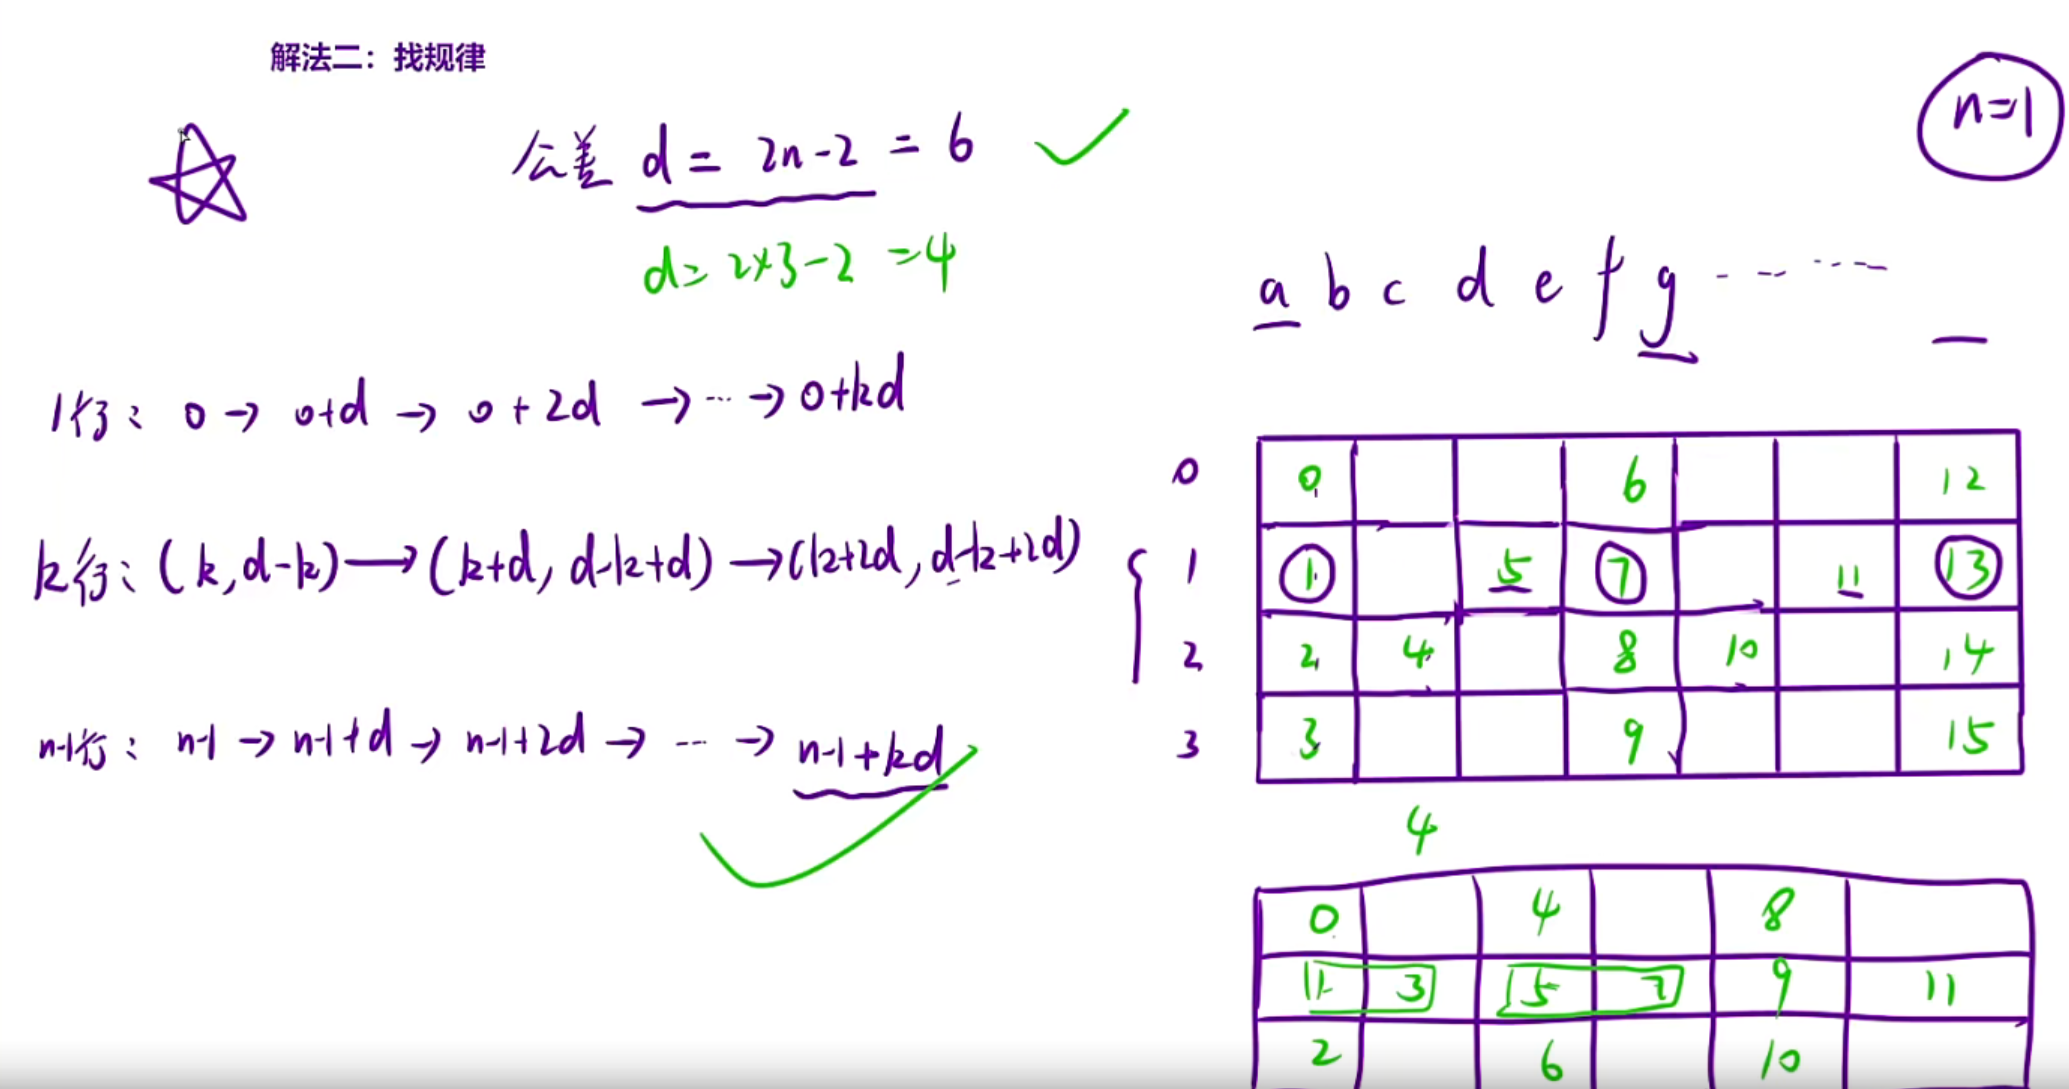 解法二：找规律
n=1
公差 d = 2n-2 = 6
d = 2×3-2 = 4
a b c d e f g ……
1行: 0 → 0+d → 0+2d → … → 0+kd
k行: (k, d-k) → (k+d, d-k+d) → (k+2d, d-k+2d)
n-1行: n-1 → n-1+d → n-1+2d → … → n-1+kd
0 0 6 12
1 1 5 7 11 13
2 2 4 8 10 14
3 3 9 15
4
0 4 8
1 3 5 7 9 11
2 6 10